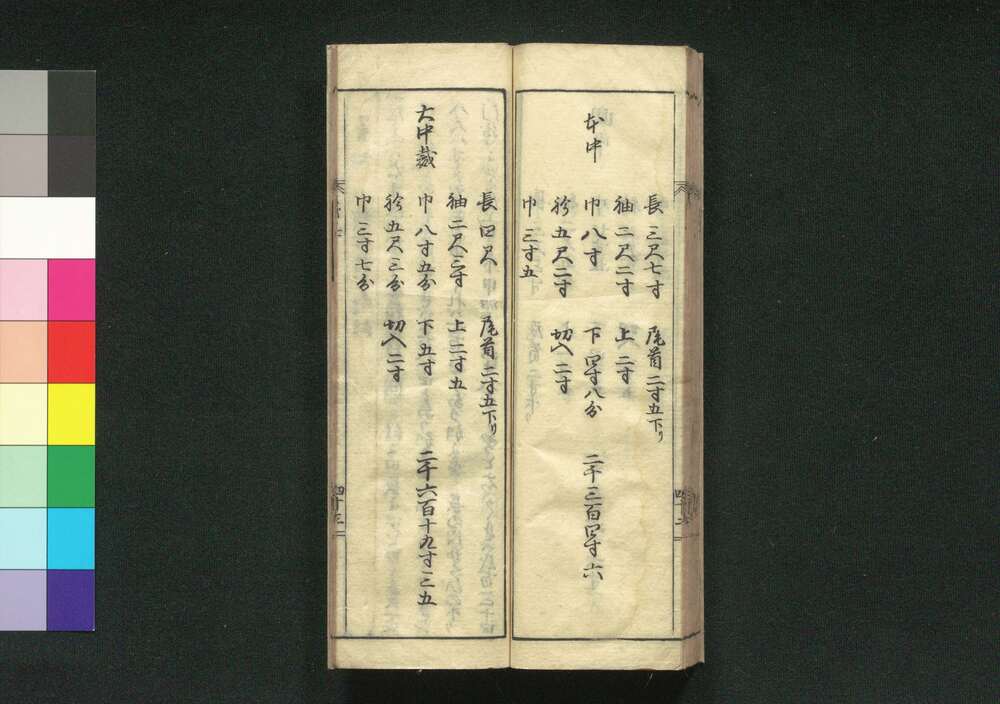 本中
長 三尺七寸 尾首二寸五下り
袖 二尺二寸 上 二寸
巾 八寸 下 四寸八分 二千三百四寸六
衿 五尺二寸 切入二寸
巾 三寸五
四十二
大中蔵
長 四尺 尾首二寸五下り
袖 二尺三寸 上 二寸五
巾 八寸五分 下 五寸 二千六百十九寸三五
衿 五尺三分 切入二寸
巾 三寸七分
四十三